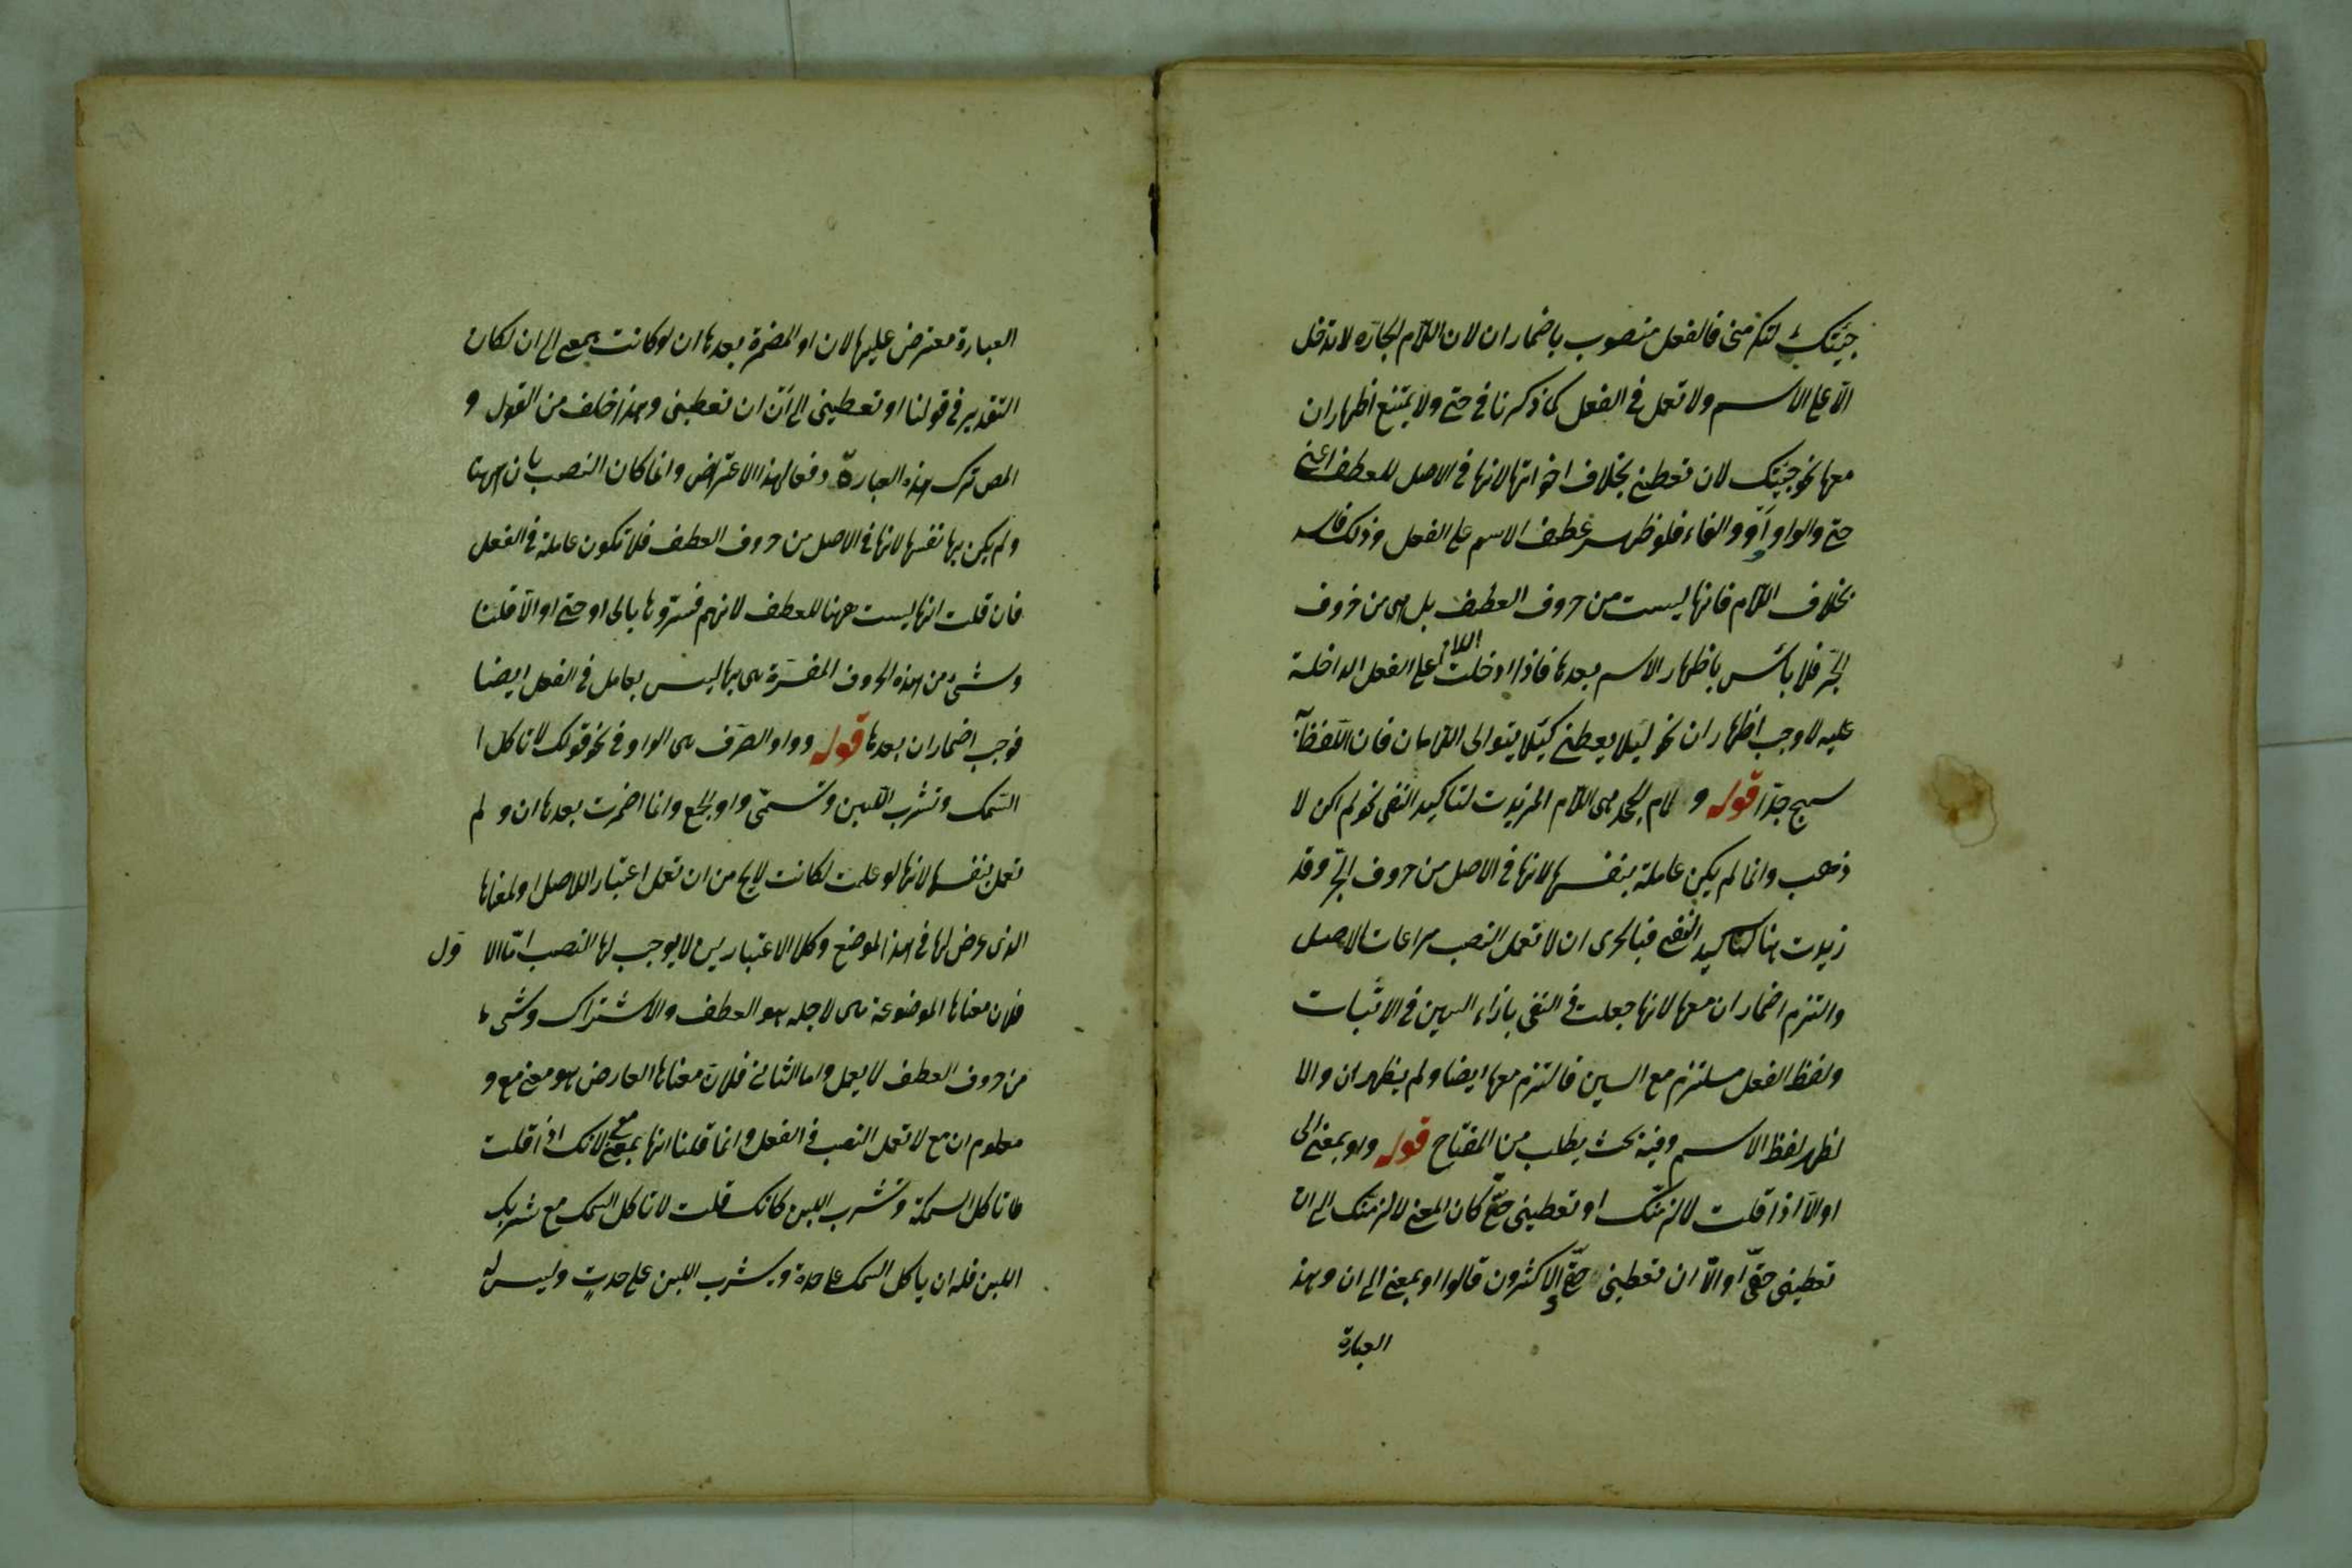 جئتك لتكرمنى فالفعل منصوب باضمار ان لان اللام الجارة لا تدخل
الا على الاسم ولا تعمل فى الفعل كما ذكرنا فى حتى ولا يمتنع اظهار ان
معها نحو جئتك لان تعطينى بخلاف اخواتها لانها فى الاصل للعطف اعنى
حتى والواو وأو والفاء فلو ظهر عطف الاسم على الفعل وذلك فاسد
بخلاف اللام فانها ليست من حروف العطف بل هى من حروف
الجر فلا بأس باظهار الاسم بعدها فاذا ادخلت اللام على الفعل الداخلة
عليه لا وجب اظهار ان نحو لئلا يعطينى كيلا يتوالى اللامان فان التلفظ به
سمج جدا قوله و لام الجحد هى اللام المزيدت لتاكيد النفى نحو لم اكن لا
ذهب وانما لم يكن عاملة بنفسها لانها فى الاصل من حروف الجر وقد
زيدت هنا لتاكيد النفى فبالحرى ان لا تعمل النصب مراعات للاصل
والتزم اضمار ان معها لانها جعلت فى النفى بازاء السين فى الاثبات
ولفظ الفعل مستلزم مع السين فالتزم معها ايضا ولم يظهر ان والا
لظهر لفظ الاسم وفيه بحث يطلب من المفتاح قوله واو بمعنى الى
او الا اذا قلت لالزمنك او تعطينى حقى كان المعنى لالزمنك الى ان
تعطينى حقى او الا ان تعطينى حقى والاكثرون قالوا او بمعنى الى ان وهذ
العبارة
العبارة معترض عليها لان او المضمرة بعدها ان لو كانت بمعنى الى ان لكان
التقدير فى قولنا او تعطينى الى ان ان تعطينى وهذا خلف من القول و
المص ترك هذه العبارة دفعا لهذا الاعتراض وانما كان النصب بان ههنا
ولم يكن بها نفسها لانها فى الاصل من حروف العطف فلا تكون عاملة فى الفعل
فان قلت انها ليست ههنا للعطف لانهم فسروها بالى او حتى او الا قلنا
وشئ من هذه الحروف المفسرة هى بها ليس بعامل فى الفعل ايضا
فوجب اضمار ان بعدها قوله وواو الصرف هى الواو فى نحو قولك لا تاكل ا
السمك وتشرب اللبن وتسمى واو الجمع وانما اضمرت بعدها ان و لم
تعمل بنفسها لانها لو علمت لكانت لا يخ من ان تعمل اعتبارا للاصل او لمعناها
الذى عرض لها فى هذا الموضع وكلا الاعتبارين لا يوجب لها النصب اما الا ول
فلان معناها الموضوعة هى لاجله هو العطف والاشتراك وشىء
من حروف العطف لا يعمل واما الثانى فلان معناها العارض هو معنى مع و
معلوم ان مع لا تعمل النصب فى الفعل وانما قلنا انها بمعنى مع لانك اذا قلت
لا تاكل السمكة وتشرب اللبن كانك قلت لا تاكل السمك مع شربك
اللبن فله ان ياكل السمك على حدة ويشرب اللبن على حدة وليس له